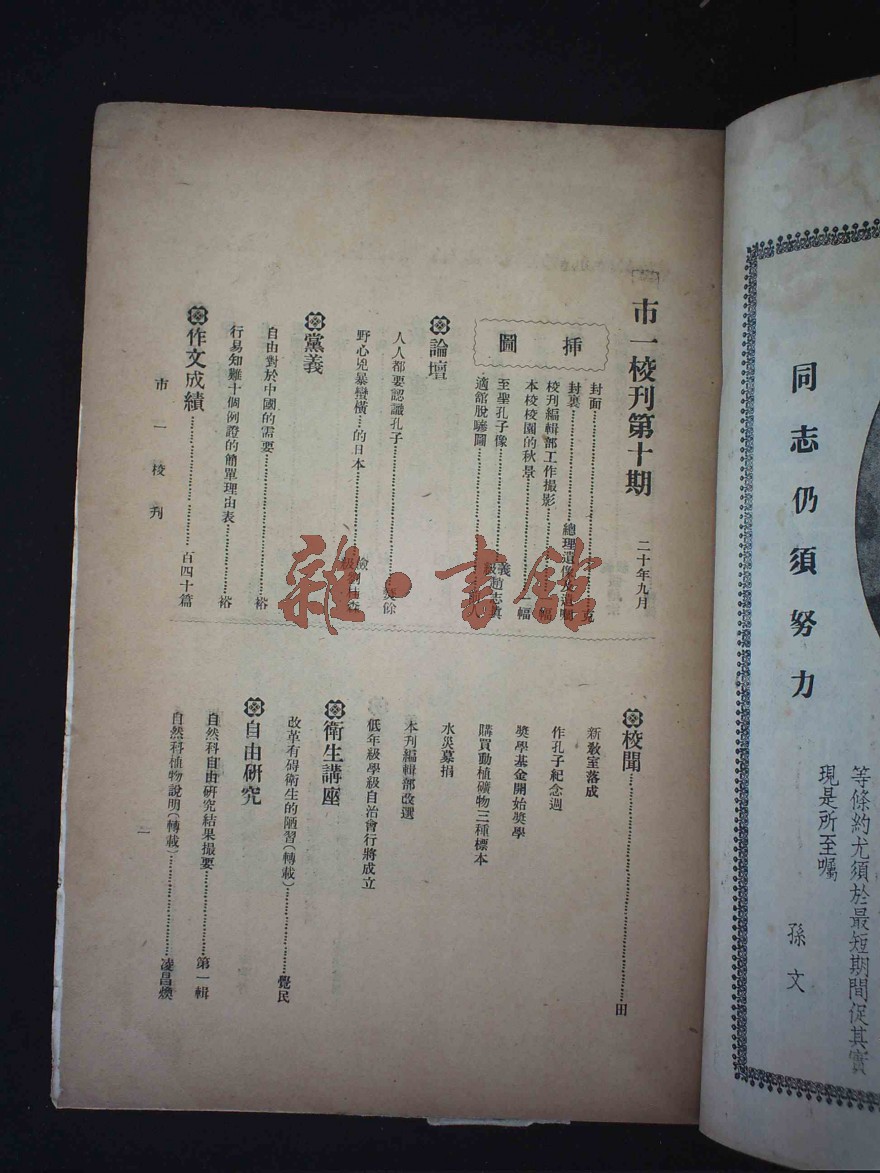 市一校刊第十期　二十年九月
插圖
封面……克
封裏……總理遺像及遺囑
校刊編輯部工作撮影……幅
本校校園的秋景……幅
至聖孔子像……義級趙志真
適館脫驂圖……
論壇
人人都要認識孔子……餘
野心兇暴蠻橫…的日本……級
黨義
自由對於中國的需要……裕
行易知難十個例證的簡單理由表……裕
作文成績……百四十篇
校聞……田
新教室落成
作孔子紀念週
獎學基金開始獎學
購買動植礦物三種標本
水災募捐
本刊編輯部改選
低年級學級自治會行將成立
衛生講座
改革有碍衛生的陋習(轉載)……覺民
自由研究
自然科自由研究結果撮要……第一輯
自然科植物說明(轉載)……凌昌煥
市一校刊
一
同志仍須努力
等條約尤須於最短期間促其實
現是所至囑
孫文
雜·書館